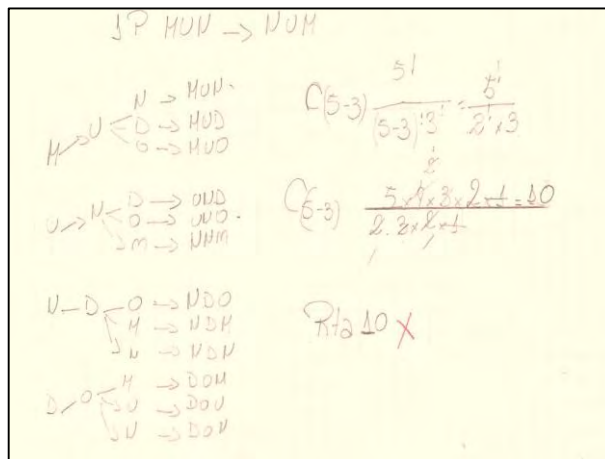 1P MUN → NUM
M → U
N → MUN.
D → MUD
O → MUO
U → N
D → UND
O → UNO.
M → NNM
N - D
O → NDO
M → NDM
N → NDN
D - O
M → DOM
U → DOU
N → DON
C(5-3) 5! / (5-3)! 3! = 5! / 2! x 3
C(5-3) 5 x 4 x 3 x 2 x 1 = 10 / 2. 3 x 2 x 1
Rta 10 X